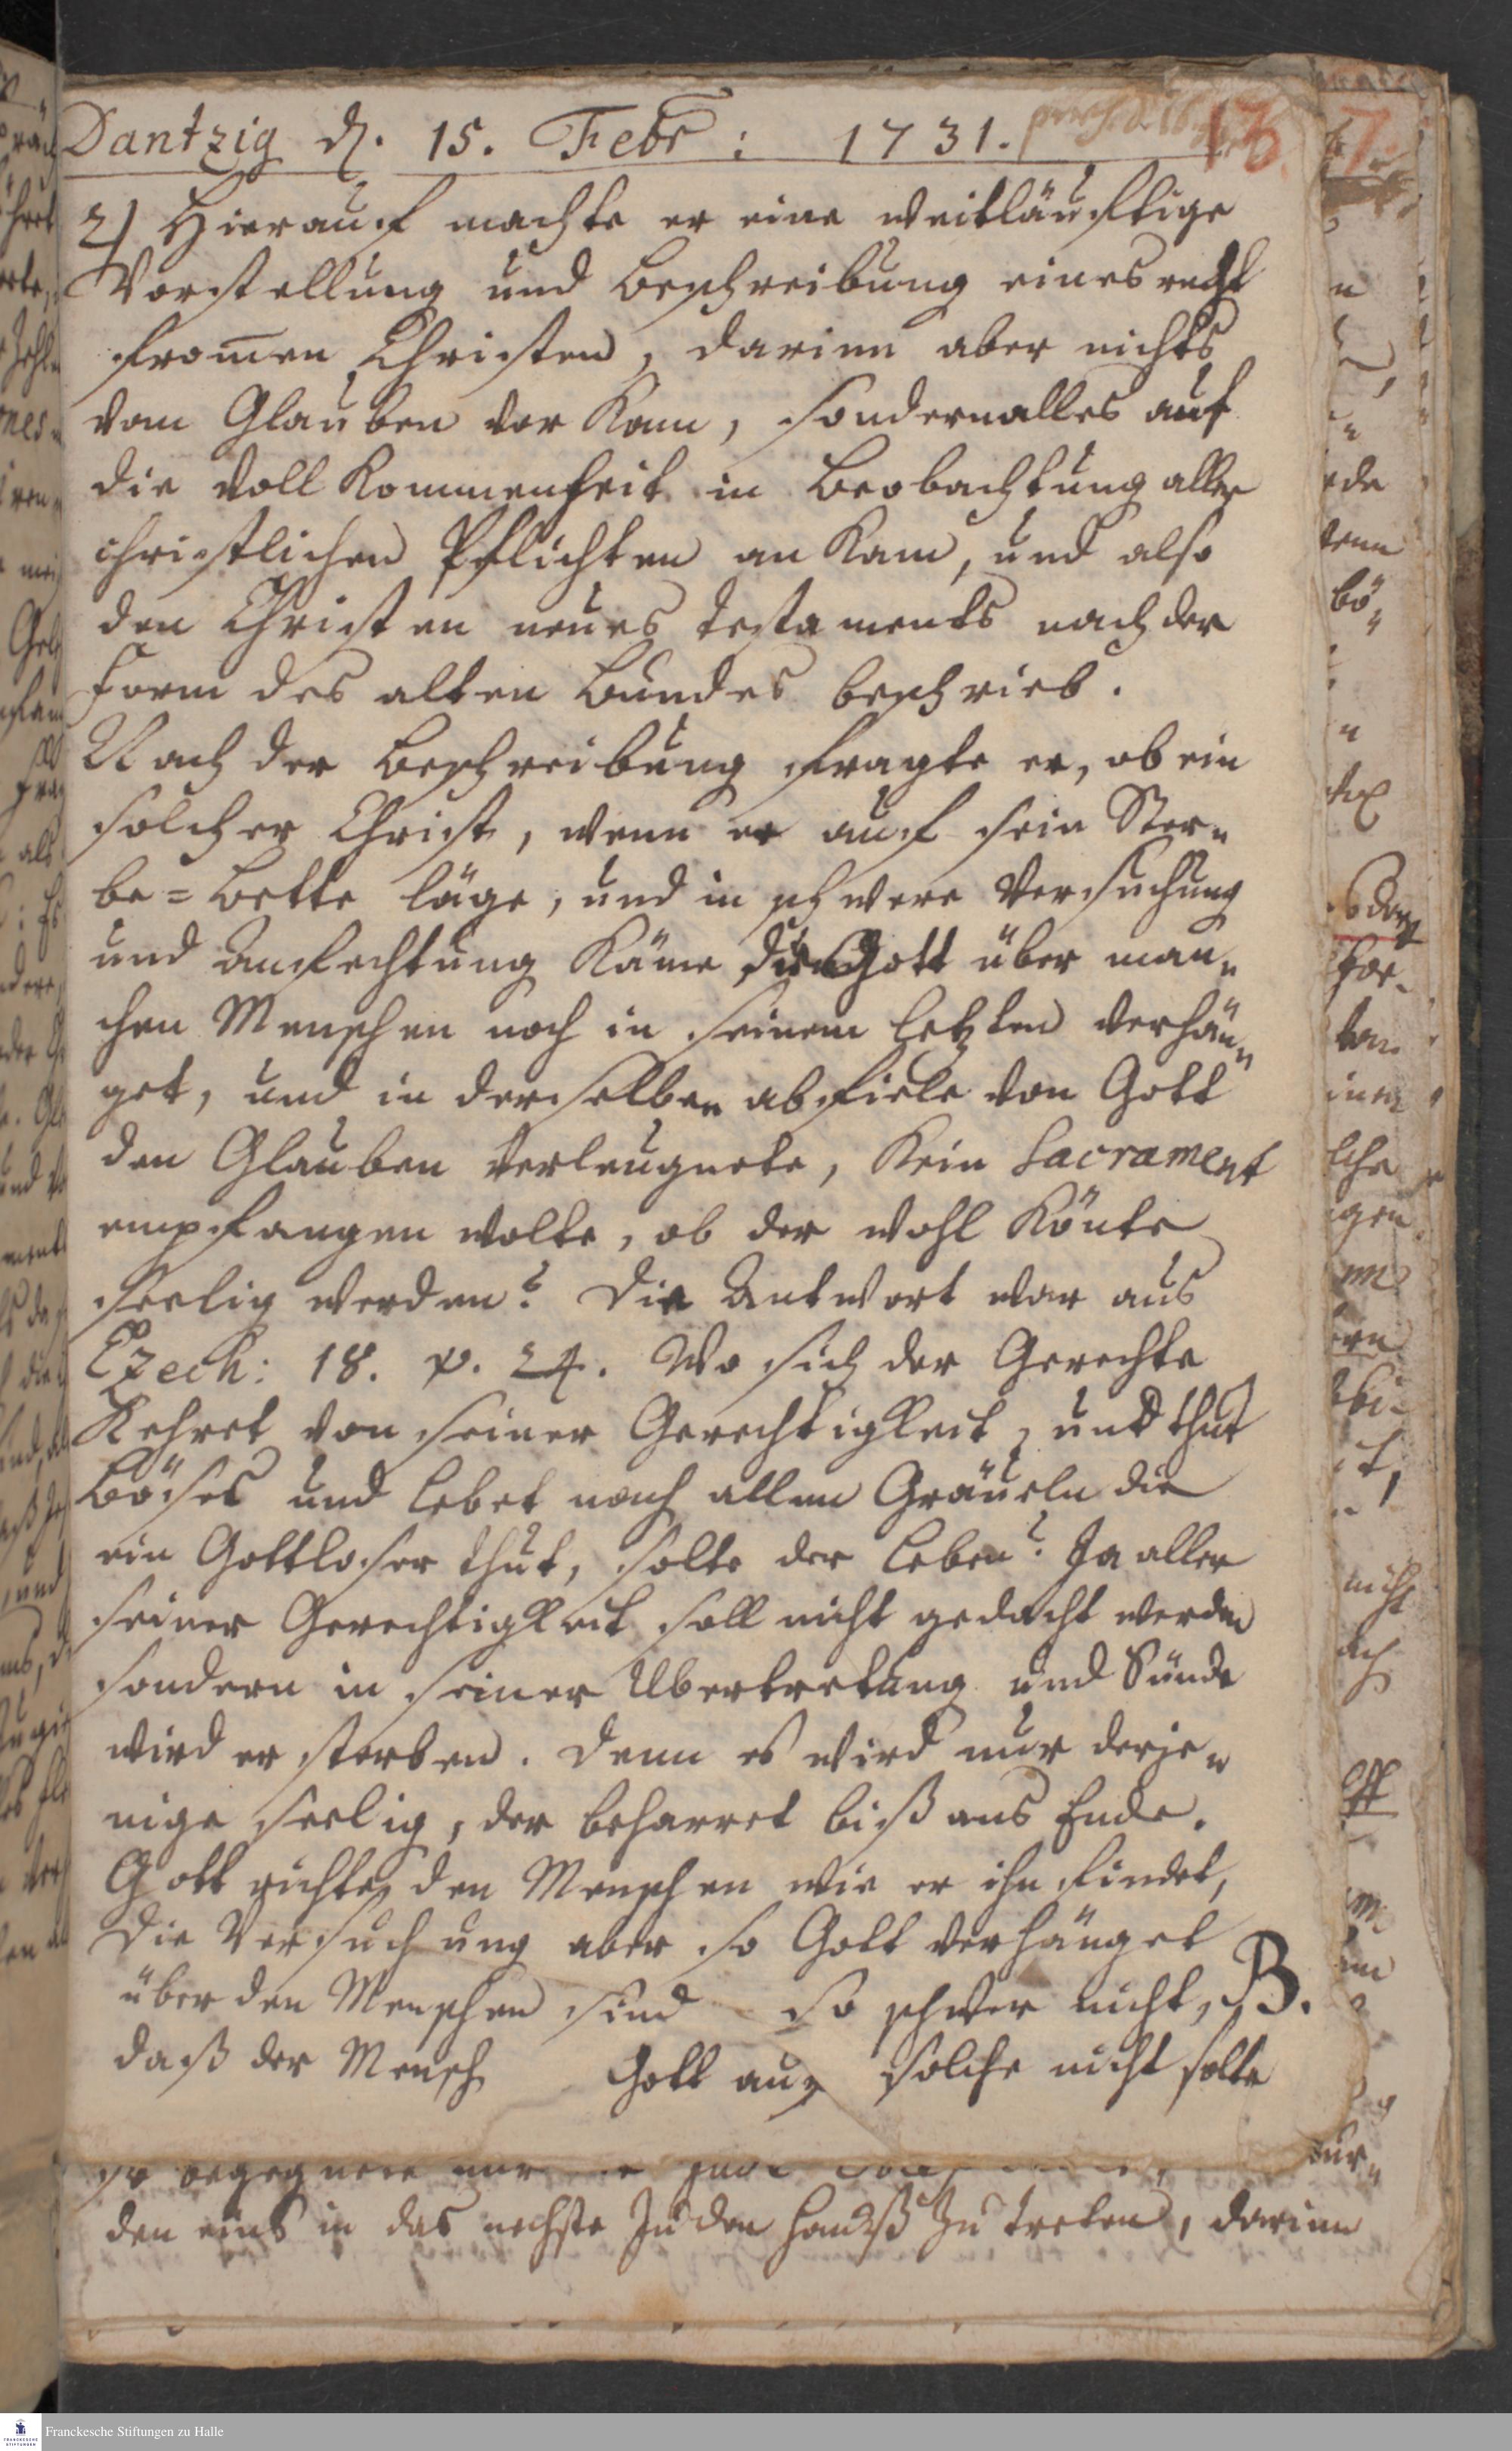 Dantzig d. 15. Febr: 1731.
13
2) Hierauf machte er eine weitläuftige
Vorstellung und Beschreibung eines recht
from̅en Christen, darinn aber nichts
vom Glauben vor kam, sondern alles auf
die Voll kommenheit in Beobachtung aller
christlichen Pflichten an kam, und also
den Christen neues Testaments nach der
Form des alten Bundes beschrieb.
Nach der Beschreibung fragte er, ob ein
solcher Christ, wenn er auf sein Ster„
be=Bette läge, und in schwere Versuchung
und Anfechtung käme die Gott über man„
chen Menschen noch in seinem letzten verhän„
get, und in derselben abfiele von Gott
den Glauben verleugnete, kein Sacrament
empfangen wolte, ob der wohl könte
seelig werden? Die Antwort war aus
Ezech: 18. v. 24. Wo sich der Gerechte
kehret von seiner Gerechtigkeit, und thut
Böses und lebet nach allen Gräueln die
ein Gottloser thut, solte der leben? Ja aller
seiner Gerechtigkeit soll nicht gedacht werden
sondern in seiner Ubertretung und Sünde
wird er sterben. Denn es wird nur derje„
nige seelig, der beharret biß ans Ende.
Gott richtet den Menschen wie er ihn findet,
Die Versuchung aber so Gott verhänget
über den Menschen sind so schwer nicht, B.
daß der Mensch Gott auf solche nicht solte
so begegnete mir
den uns in das nechste Juden Hauß zu treten, darinn
Franckesche Stiftungen zu Halle